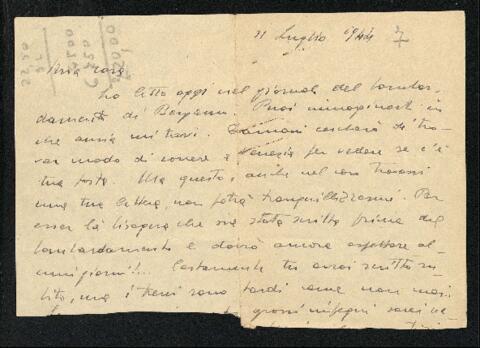 21 Luglio 1944
Mia cara,
ho letto oggi nel giornale del bombar-
damento di Bergamo. Puoi immaginarti in
che ansia mi trovi. Domani cercherò di tro-
var modo di correre a Venezia per vedere se c'è
tua posta. Ma questo, anche nel caso trovassi
una tua lettera, non potrà tranquillizzarmi. Per
esser là bisogna che sia stata scritta prima del
bombardamento e dovrò ancora aspettare al-
cuni giorni!... Certamente tu avrai scritto su-
bito, ma i treni sono tardi come non mai
grossi